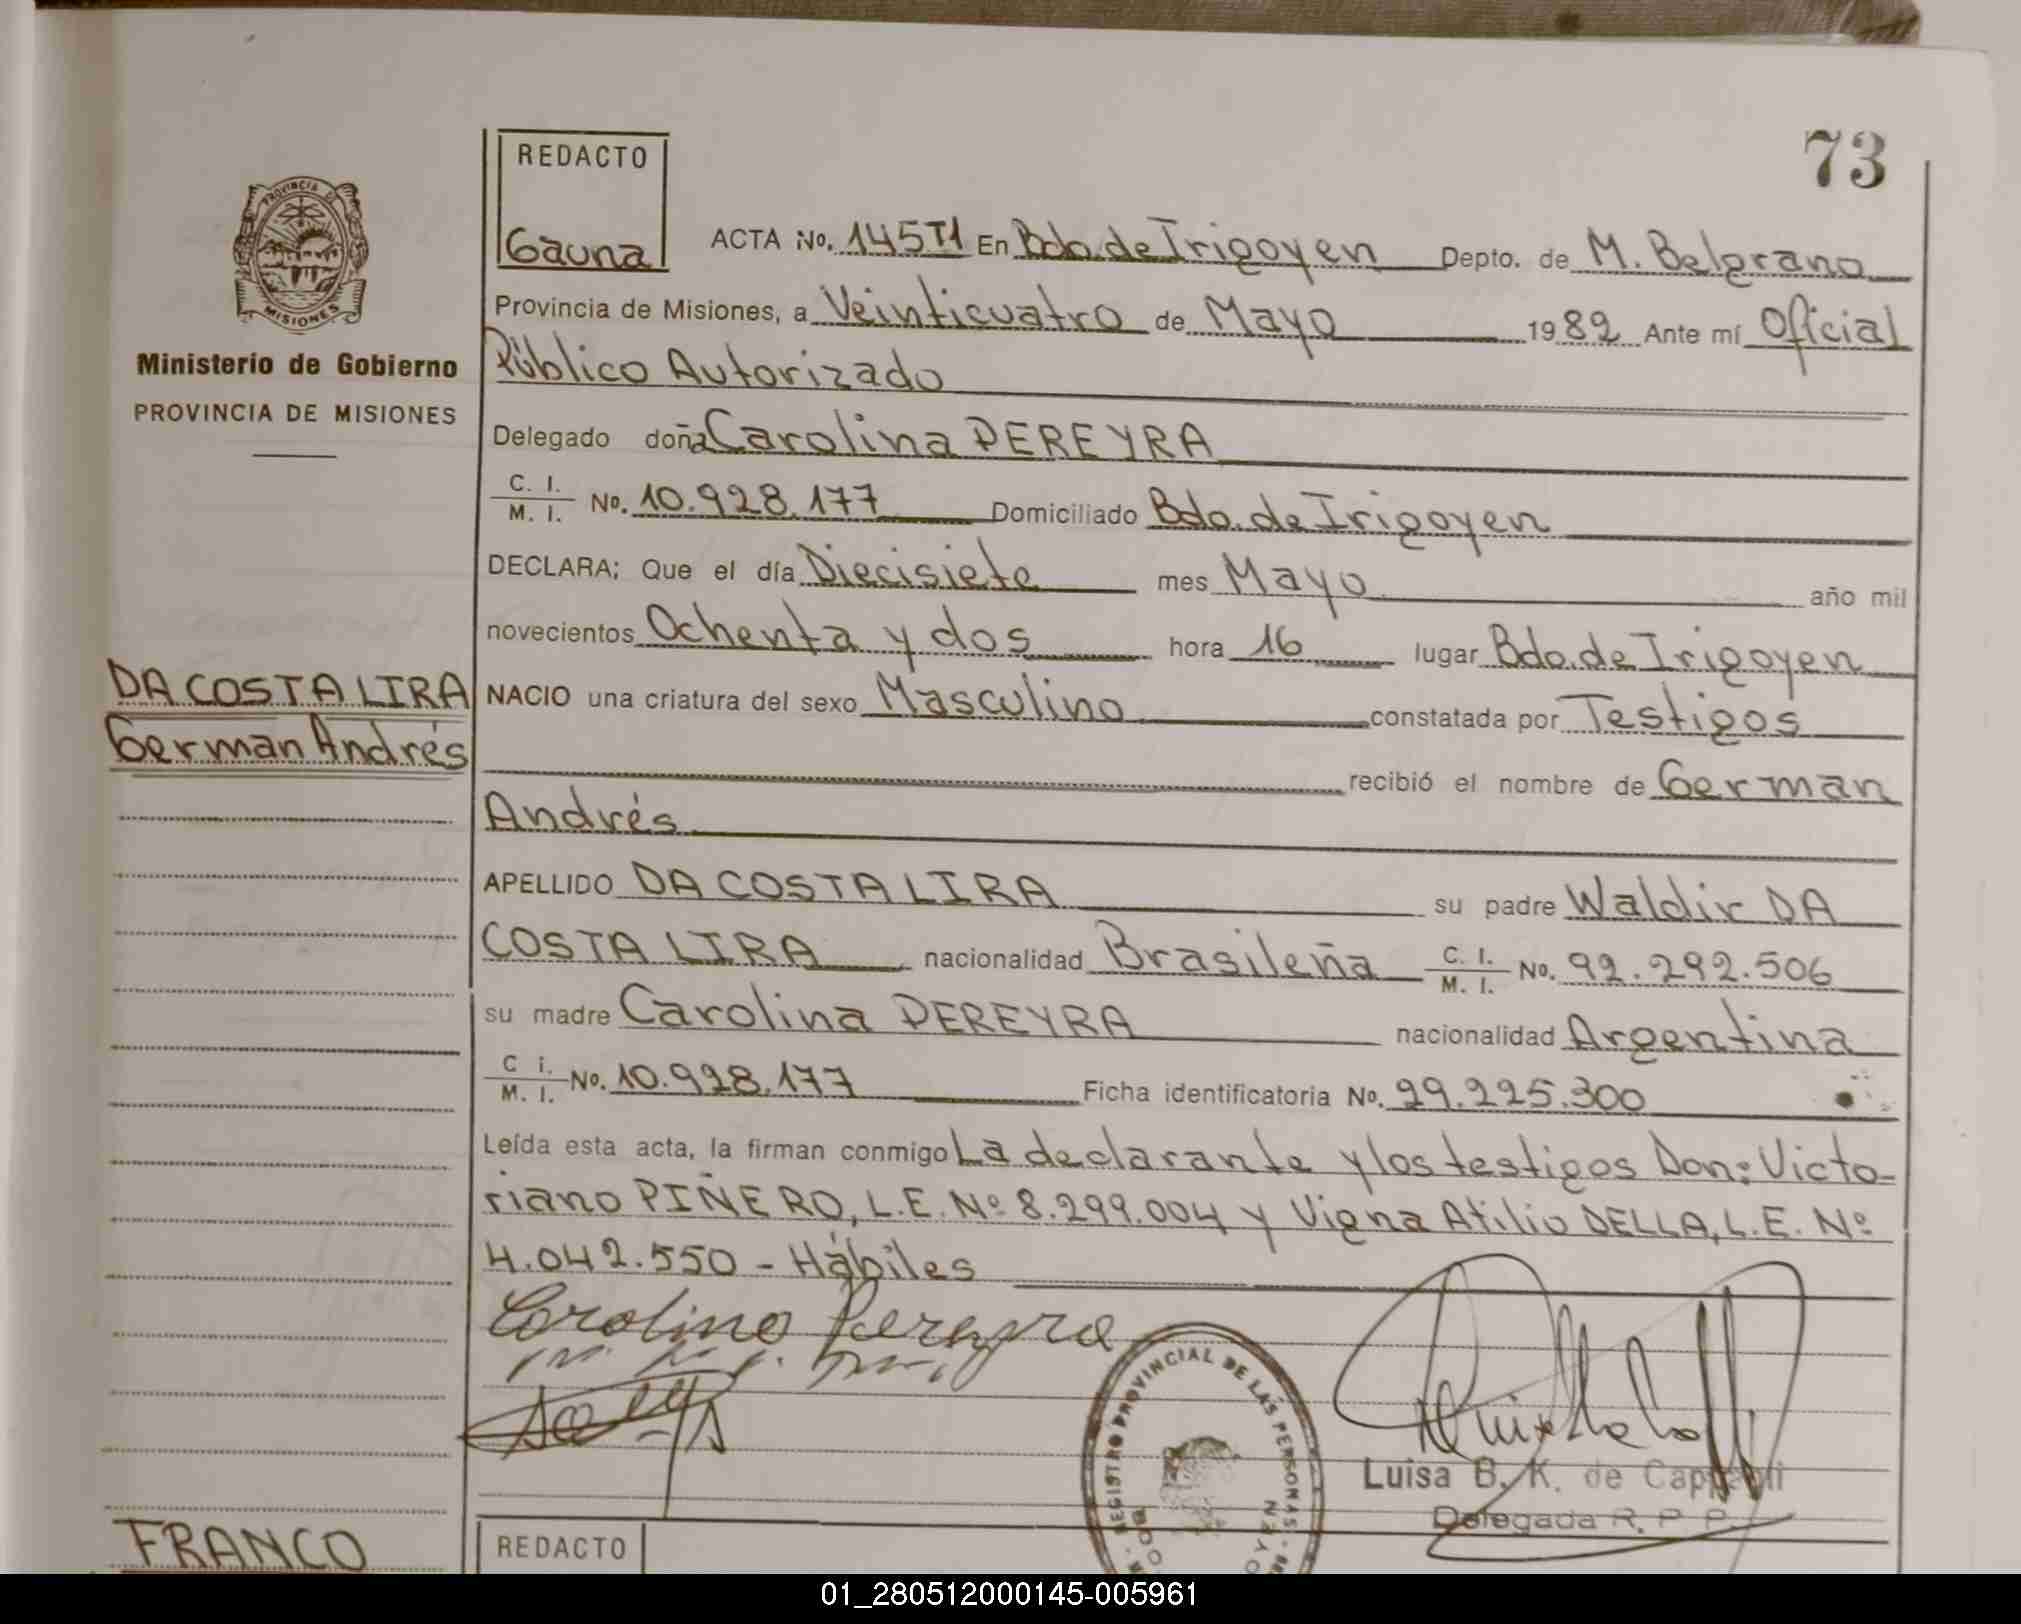 73
REDACTO
Gauna
PROVINCIA DE
MISIONES
Ministerio de Gobierno
PROVINCIA DE MISIONES
ACTA No. 145T1 En Bdo. de Irigoyen Depto. de M. Belgrano
Provincia de Misiones, a Veinticuatro de Mayo 1982 Ante mí Oficial
Público Autorizado
Delegado doña Carolina PEREYRA
C. I. / M. I. No. 10.928.177 Domiciliado Bdo. de Irigoyen
DECLARA; Que el día Diecisiete mes Mayo año mil
novecientos Ochenta y dos hora 16 lugar Bdo. de Irigoyen
DA COSTA LIRA
German Andrés
NACIO una criatura del sexo Masculino constatada por Testigos
recibió el nombre de German
Andrés
APELLIDO DA COSTA LIRA su padre Waldir DA
COSTA LIRA nacionalidad Brasileña C. I. / M. I. No. 92.292.506
su madre Carolina PEREYRA nacionalidad Argentina
C i. / M. I. No. 10.928.177 Ficha identificatoria No. 29.225.300
Leída esta acta, la firman conmigo La declarante y los testigos Don: Victo-
riano PIÑERO, L.E. Nº 8.299.004 y Vigna Atilio DELLA, L.E. Nº
4.042.550 - Hábiles
Carolina Pereyra
REGISTRO PROVINCIAL DE LAS PERSONAS
Luisa B. K. de Cappelli
Delegada R. P. P.
FRANCO
REDACTO
01_280512000145-005961